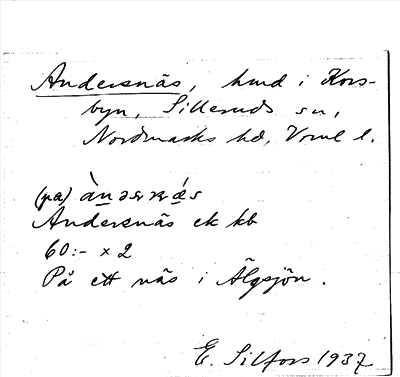 Andersnäs, hmd i Kors-
byn, Silleruds sn,
Nordmarks hd, Vrml l.
(pa) ànəsnǽs
Andersnäs ek kb
60:- x 2
På ett näs i Älgsjön.
E. Silfors 1937